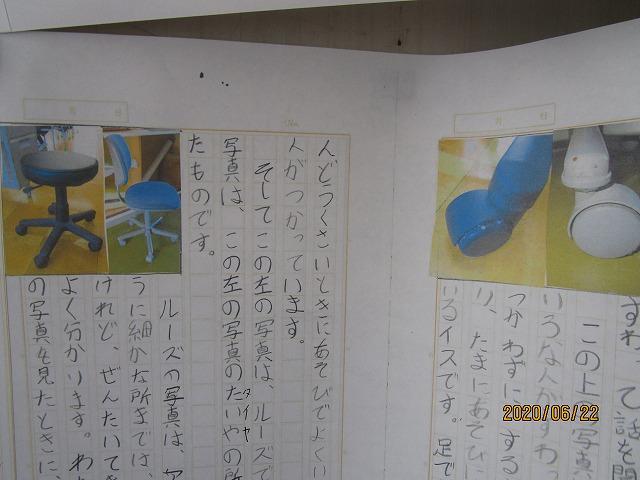 すわって話を聞
この上の写真
いろな人がすわっ
つかわずに、する
り、たまにあそびに
いるイスです。足で
んどうくさいときにあそびでよくい
人がつかっています。
そしてこの左の写真は、ルーズで
写真は、この左の写真のたいやの所
タイヤ
たものです。
ルーズの写真は、ア
うに細かな所までは、
けれど、ぜんたいてき
よく分かります。わ
の写真を見たときに、
月 日
月 日
No.
2020/06/22